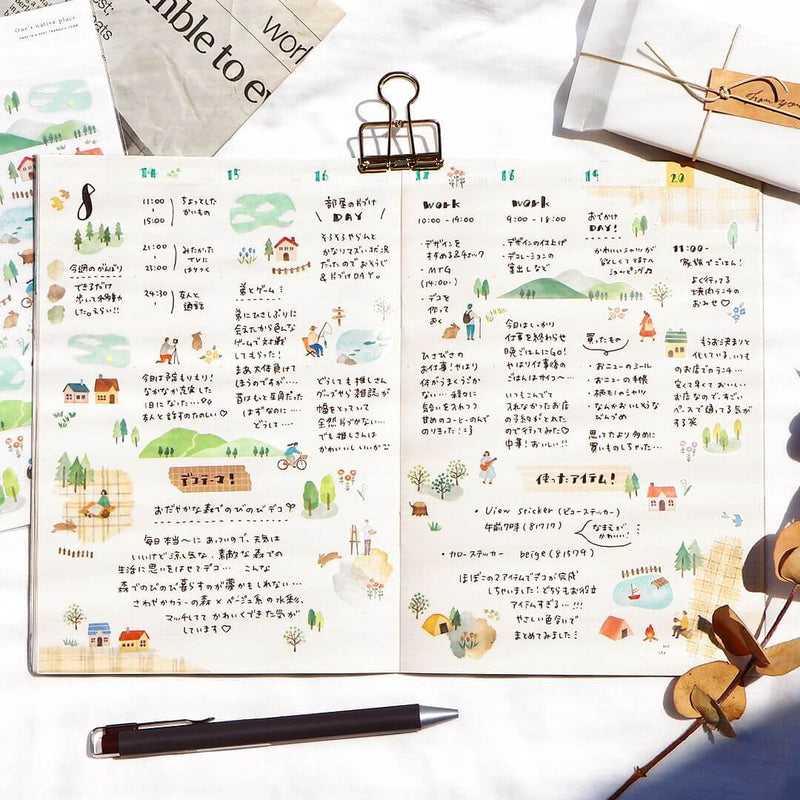 One's native place
mble to e
worl
thank you
8
14
11:00
15:00
ちょっとした
かいもの
21:00
23:00
みたかった
TVに
はりつく
24:30
友人と
通話
今週のがんばり
できるだけ
歩いて移動し
た。えらい!!
今日は予定もりもり!
なかなか充実した
1日になった…
友人と話すのたのしい♡
15
弟とゲーム
弟にひさしぶりに
会えたから色んな
ゲームで対戦
してもらった!
まあ大体負けて
ほうのですが…
昔はもっと互角だった
はずなのに…
どうして…
16
部屋の片づけ
\ DAY /
そろそろやらんと
かなりマズい状況
だったのでおそうじ
& 片づけDAY。
どうしても推しさん
グッズやら雑誌が
幅をとっていて
全然片づかない…
でも推しさんは
かわいいしいいかな
デコテーマ!
おだやかな森でのびのびデコ
毎日本当〜にあついので、天気は
いいけど涼し気な、素敵な森での
生活に思いをはせてデコ… こんな
森でのびのび暮らすのが夢かもしれない…
さわやかカラーの森×ベージュ系の水彩、
マッチしててかわいくできた気が
しています♡
17
WORK
10:00 - 19:00
・デザインを
すすめる&チェック
・MTG
(14:00-)
・デコを
作って
おく
ひさびさの
お仕事!やはり
体がまうくうごか
ない… 緑りに
気合いを入れつつ
甘めのコーヒーのんで
のりきった!
18
WORK
9:00 - 18:00
・デザインの仕上げ
・デコレーションの
書出しなど
今日はしっかり
仕事を終わらせ
晩ごはんにGO!
やはり仕事後の
ごはんはサイコ〜
いつもこんでて
入れなかったお店
の予約がとれた
ので行ってみた♡
中華!おいしい!!
19
おでかけ
DAY!
かわいいシャツが
欲しくてまちさん
ショッピング♪
買ったもの
・お二ューのミール
・お二ューの手帳
・柄モノのシャツ
・なんかおいしそう
ぱんぷむ
思ってたより多めに
買いものしちゃった…
20
11:00 -
家族でごはん!
よく行ってる
焼肉ランチの
おみせ♡
もうお決まりと
化している、いつも
のお店でのランチ…
安くて早くておいしい
お店なので、すごい
ペースで通ってる気が
する笑
使ったアイテム!
・View sticker (ビューステッカー)
午前7時 (81717)
なまえが
かわいい!
・カローステッカー beige (81579)
ほぼこの2アイテムでデコが完成
しちゃいました!どちらもお役立
アイテムすぎる…!!!
やさしい色合いで
まとめてみました!